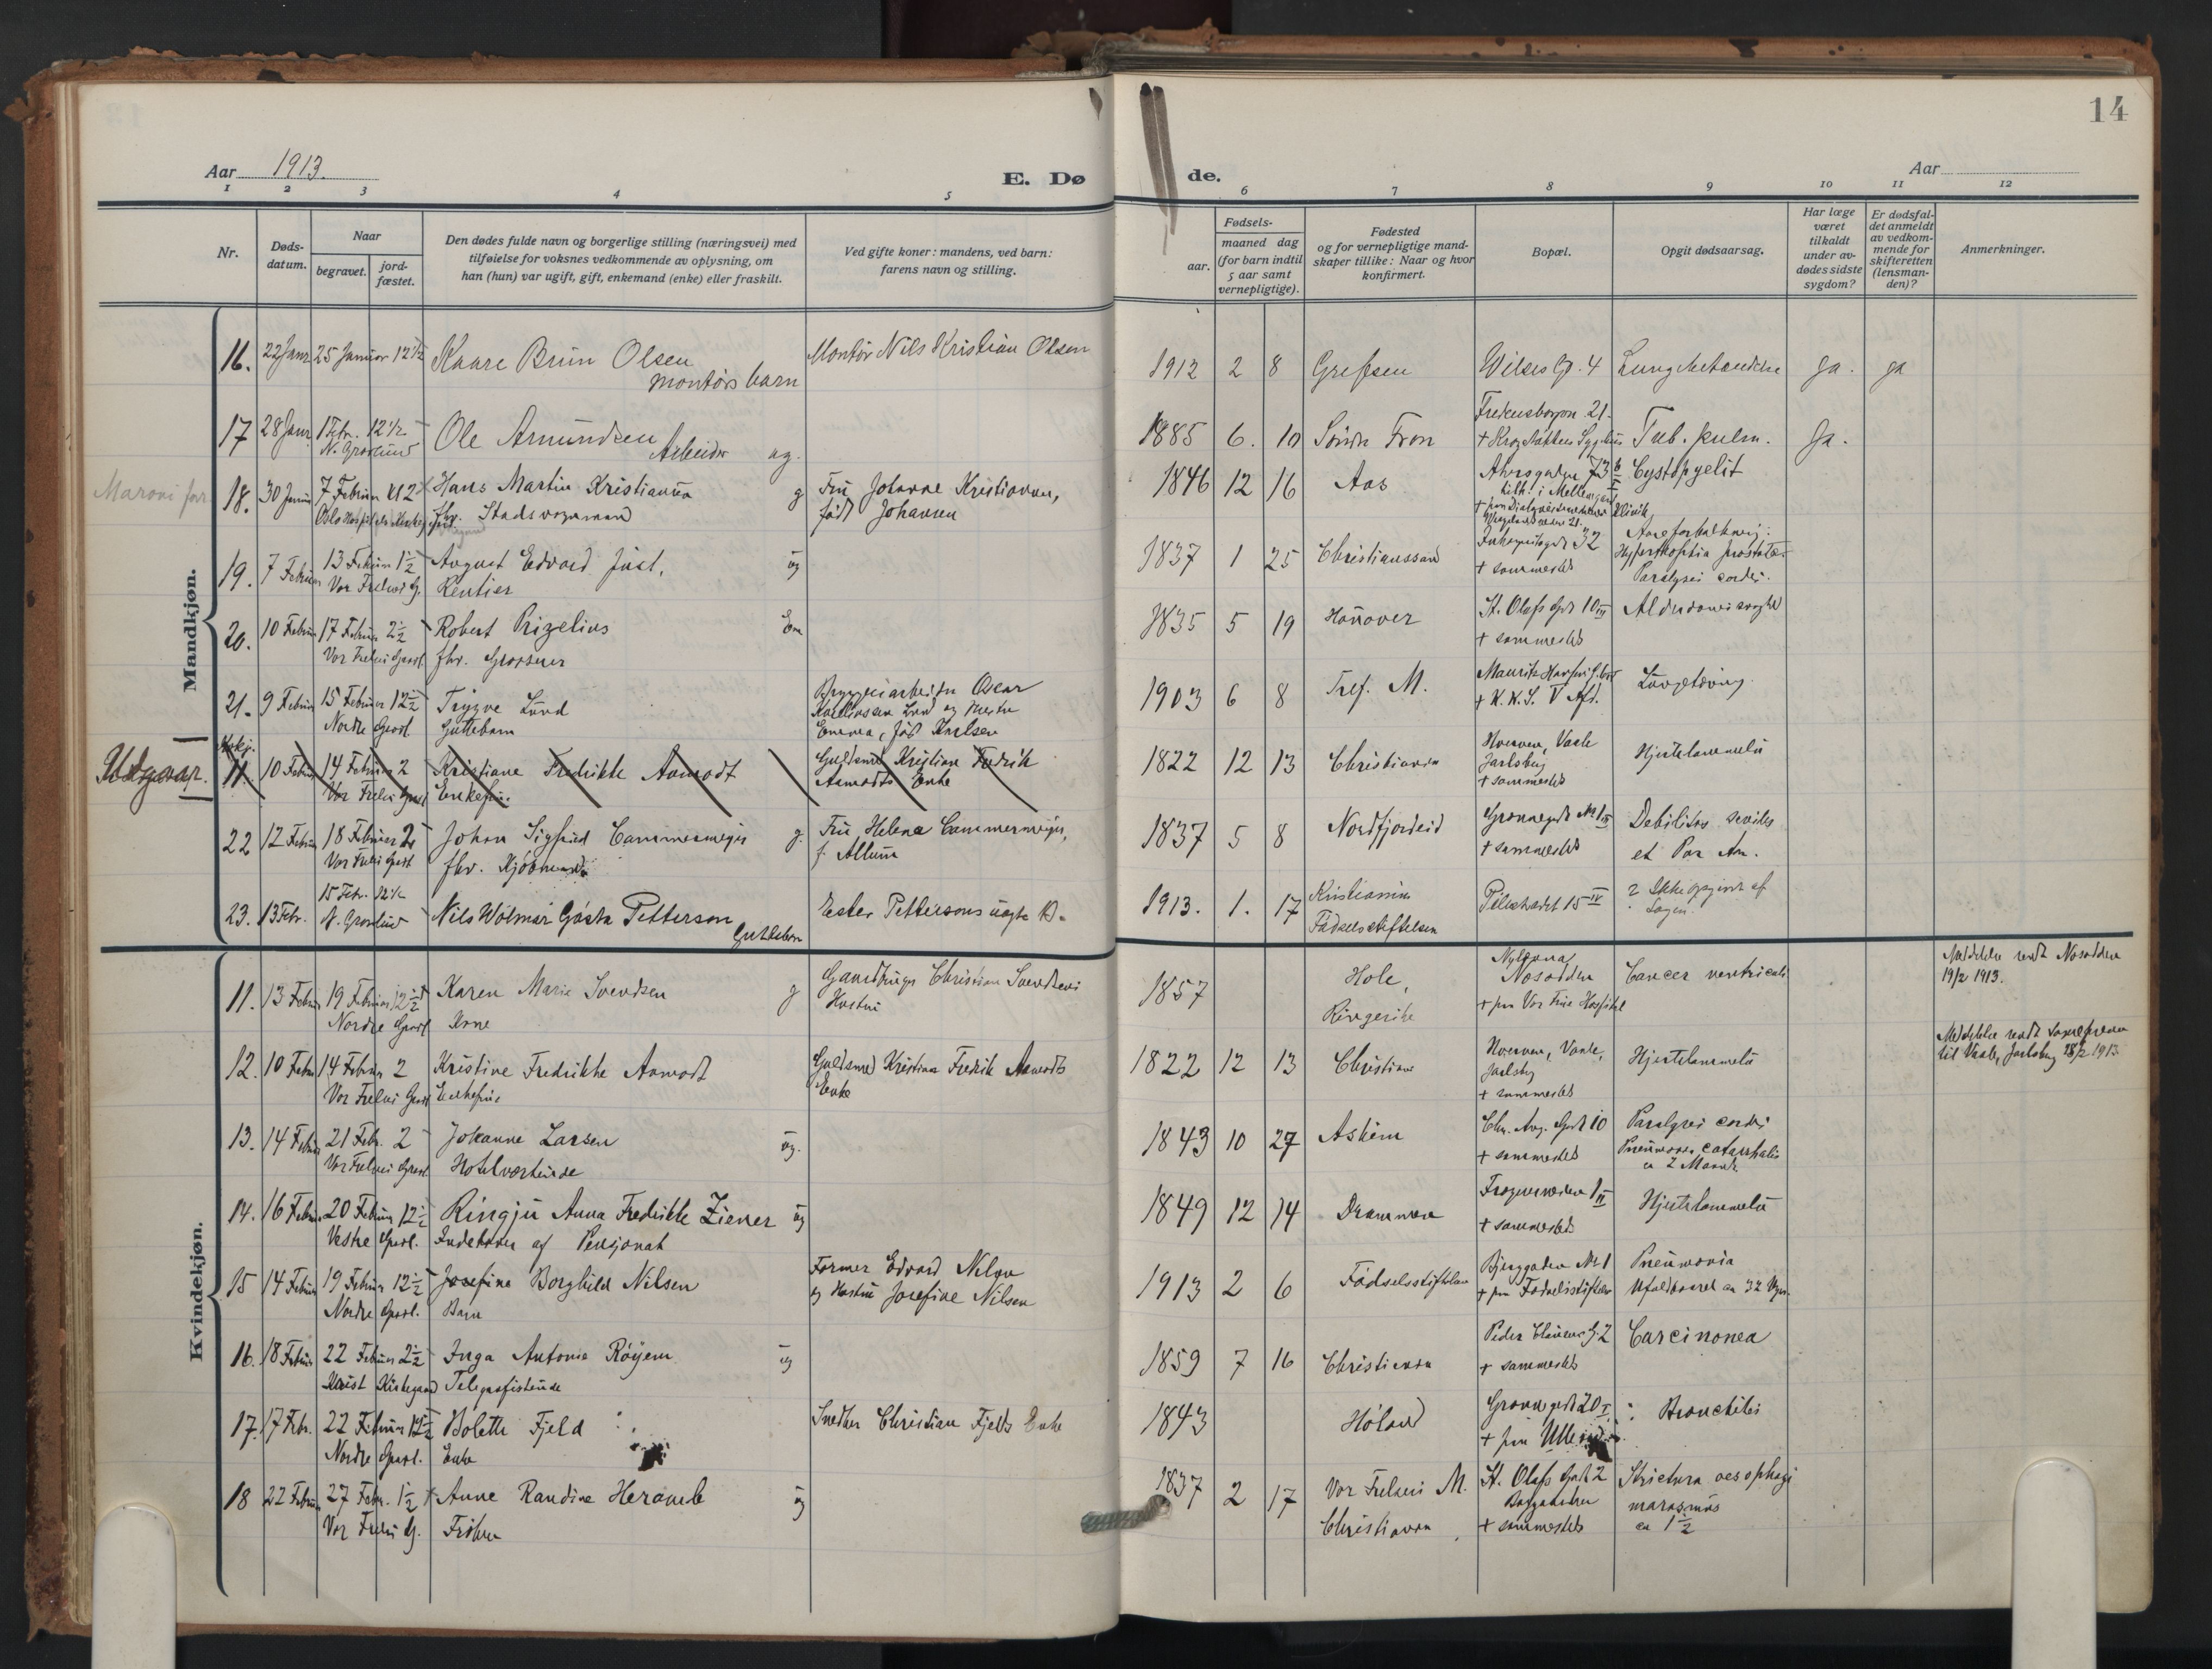 14
Aar 1913.
E. Dø
de.
Aar
1 2 3 4 5 6 7 8 9 10 11 12
Nr.
Døds-
datum.
Naar
begravet.
jord-
fæstet.
Den dødes fulde navn og borgerlige stilling (næringsvei) med
tilføielse for voksnes vedkommende av oplysning, om
han (hun) var ugift, gift, enkemand (enke) eller fraskilt.
Ved gifte koner: mandens, ved barn:
farens navn og stilling.
Fødsels-
aar.
maaned dag
(for barn indtil
5 aar samt
vernepligtige).
Fødested
og for vernepligtige mand-
skaper tillike: Naar og hvor
konfirmert.
Bopæl.
Opgit dødsaarsag.
Har læge
været
tilkaldt
under av-
dødes sidste
sygdom?
Er dødsfal-
det anmeldt
av vedkom-
mende for
skifteretten
(lensman-
den)?
Anmerkninger.
Mandkjøn.
16. 22 Janr 25 Januar 12½ Kaare Brun Olsen Montør Nils Kristian Olsen 1912 2 8 Grefsen Wilses G. 4 Lungebetændelse ja. ja
montørs barn
17 28 Janr 1 Febr. 12½ Ole Amundsen 1885 6. 10 Søndre Fron Tub. pulm. Ja.
N. Gravlund Arbeider ug.
18. 30 Januar 7 Februar Hans Martin Kristiansen g Fru Johanne Kristiansen, 1846 12 16 Aas 73 Cystopyelit
fhv. Stadsvognmand født Johansen
19. 7 Februar 13 Februar 1½ August Edvard Just, ug 1837 1 25 Christianssand 32 Aareforkalkning:
Vor Frelsers G. Rentier + sammesteds Hypertrophia prostatae
Paralysis cordis.
20. 10 Februar 17 Februar 2½ Robert Prizelius Em 1835 5 19 Hannover St. Olafs Gade 10 III Alderdomssvaghed
Vor Frelsers Gravl. fhv. Grosserer + sammesteds
21. 9 Februar 15 Februar 12½ Trygve Lund Bryggeriarbeider Oscar 1903 6 8 Tref. M.
Nordre Gravl. Guttebarn Lund og Hustru + K. K. S. V Afd.
Emma, født Karlsen
Utgaar. 11. 10 Februar 14 Februar 2 Kristiane Fredrikke Aamodt Guldsmed Kristian Fredrik 1822 12 13 Christiania Vaale Hjertelammelse
Vor Frelsers Gravl Enkefrue. Aamodts Enke Jarlsberg
+ sammesteds
22 12 Februar 18 Februar 2 Johan Sigfried Cammermeyer g. Fru Helena Cammermeyer, 1837 5 8 Nordfjordeid Debilitas senilis
Vor Frelsers Gravl fhv. Kjøbmand f. Allum + sammesteds et Par An.
23. 13 Febr. 15 Febr. 12½ Nils Wolmar Gösta Petterson Ester Pettersons uegte B. 1913. 1. 17 Kristiania Pilestrædet 15 IV ? Ikke opgivet af
N. Gravlund Guttebarn Fødselsstiftelsen Lægen.
Kvindekjøn.
11. 13 Februar 19 Februar 12½ Karen Marie Svendsen g Gaardbruger Christian Svendsens 1857 Hole, Nesodden Cancer ventriculi Meddelelse sendt Nesodden
Nordre Gravl Kone Hustru Ringerike + paa Vor Frue Hospital 19/2 1913.
12. 10 Febr 14 Februar 2 Kristine Fredrikke Aamodt Guldsmed Kristian Fredrik Aamodts 1822 12 13 Christiania Vaale, Hjertelammelse Meddelelse sendt Sognepresten
Vor Frelsers Gravl Enkefrue Enke Jarlsberg til Vaale, Jarlsberg 18/2 1913.
+ sammesteds
13. 14 Februar 21 Febr. 2 Johanne Larsen ug. 1843 10 27 Askim Chr. Aug. Gade 10 Paralysis cordis
Vor Frelsers Gravl Hotelværtinde + sammesteds Pneumonia catarrhalis
14. 16 Februar 20 Februar 12½ Ringju Anna Fredrikke Ziener ug 1849 12 14 Drammen Frognerveien 1 II Hjertelammelse
Vestre Gravl. Indehaver af Pensjonat + sammesteds
15 14 Februar 19 Februar 12½ Josefine Borghild Nilsen Former Edvard Nilsen 1913 2 6 Fødselsstiftelsen No 1 Pneumonia
Nordre Gravl. Barn og Hustru Josefine Nilsen + paa Fødselsstiftelsen
16. 18 Februar 22 Februar 2½ Inga Antonie Røyem ug 1859 7 16 Christiania Peder Clausens G. 2 Carcinonea
Krist Kirkegaard Telegrafistinde + sammesteds
17. 17 Febr. 22 Februar 12½ Bolette Fjeld Snedker Christian Fjelds Enke 1843 Høland Grønnegade 20 I Bronchitis
Nordre Gravl. Enke + paa Ullevaal
18 22 Februar 27 Febr. 1½ Anne Randine Heramb ug 1837 2 17 Vor Frelsers M. St. Olafs Gade 2 Strictura oesophagi
Vor Frelsers G. Frøken Christiania + sammesteds marasmus
ca 1½